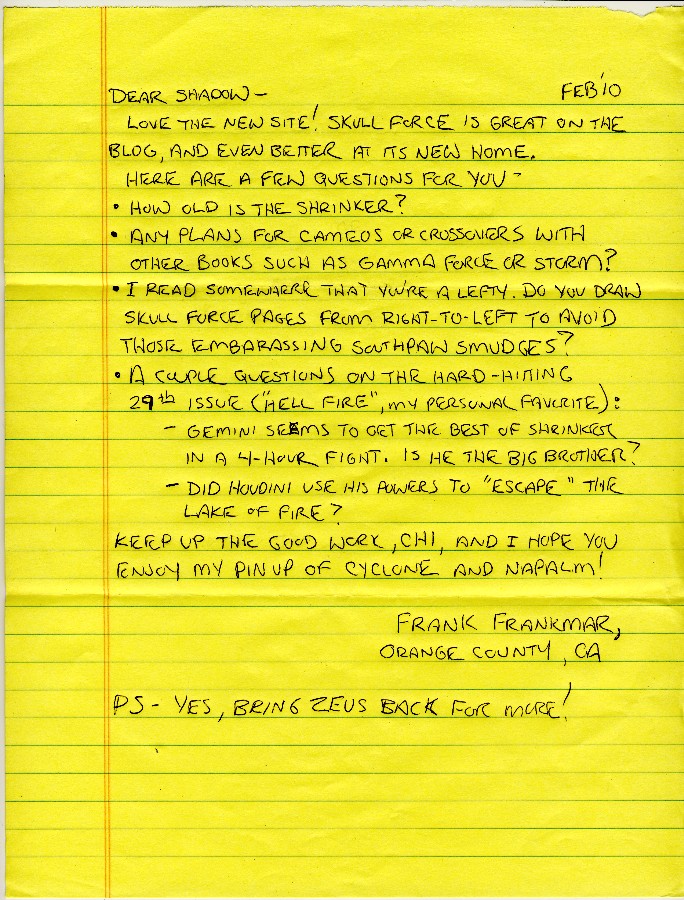 DEAR SHADOW- FEB'10
LOVE THE NEW SITE! SKULL FORCE IS GREAT ON THE
BLOG, AND EVEN BETTER AT ITS NEW HOME.
HERE ARE A FEW QUESTIONS FOR YOU-
• HOW OLD IS THE SHRINKER?
• ANY PLANS FOR CAMEOS OR CROSSOVERS WITH
OTHER BOOKS SUCH AS GAMMA FORCE OR STORM?
• I READ SOMEWHERE THAT YOU'RE A LEFTY. DO YOU DRAW
SKULL FORCE PAGES FROM RIGHT-TO-LEFT TO AVOID
THOSE EMBARASSING SOUTHPAW SMUDGES?
• A COUPLE QUESTIONS ON THE HARD-HITTING
29th ISSUE ("HELL FIRE", MY PERSONAL FAVORITE):
- GEMINI SEEMS TO GET THE BEST OF SHRINKER
IN A 4-HOUR FIGHT. IS HE THE BIG BROTHER?
- DID HOUDINI USE HIS POWERS TO "ESCAPE" THE
LAKE OF FIRE?
KEEP UP THE GOOD WORK, CHI, AND I HOPE YOU
ENJOY MY PINUP OF CYCLONE AND NAPALM!
FRANK FRANKMAR,
ORANGE COUNTY, CA
PS- YES, BRING ZEUS BACK FOR MORE!